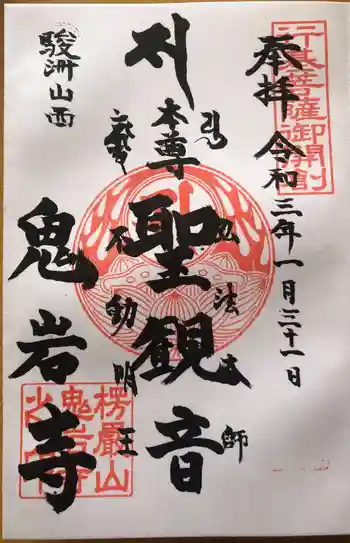 奉拝 令和三年一月三十一日
行基菩薩御開創
弘法大師
本尊 聖観音
不動明王
駿洲山西
鬼岩寺
楞嚴山
鬼岩寺